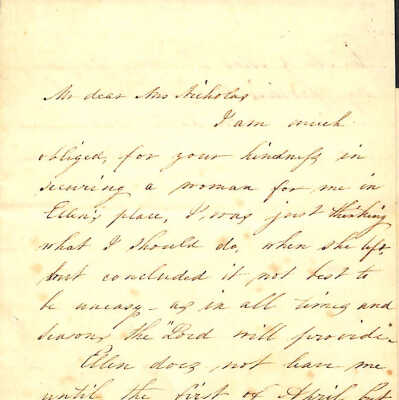 My dear Mrs Nicholas
I am much
obliged, for your kindness in
securing a woman for me in
Ellen's place, I, was just thinking
what I should do, when she left,
but concluded it not best to
be uneasy - as in all times and
seasons the "Lord will provide -
Ellen does not leave me
until the first of April but